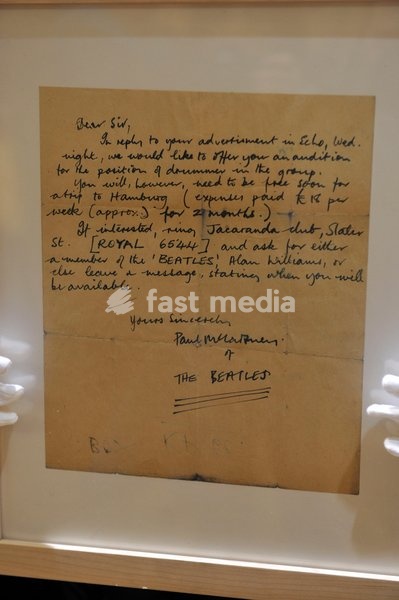 Dear Sir,
In reply to your advertisment in Echo, Wed.
night, we would like to offer you an audition
for the position of drummer in the group.
You will, however, need to be free soon for
a trip to Hamburg (expenses paid £18 per
week (approx.) for 2 months.)
If interested, ring Jacaranda club, Slater
St. [ROYAL 6544] and ask for either
a member of the 'BEATLES', Alan Williams, or
else leave a message, stating when you will
be available.
fast media
Yours Sincerely,
Paul McCartney.
of
THE BEATLES